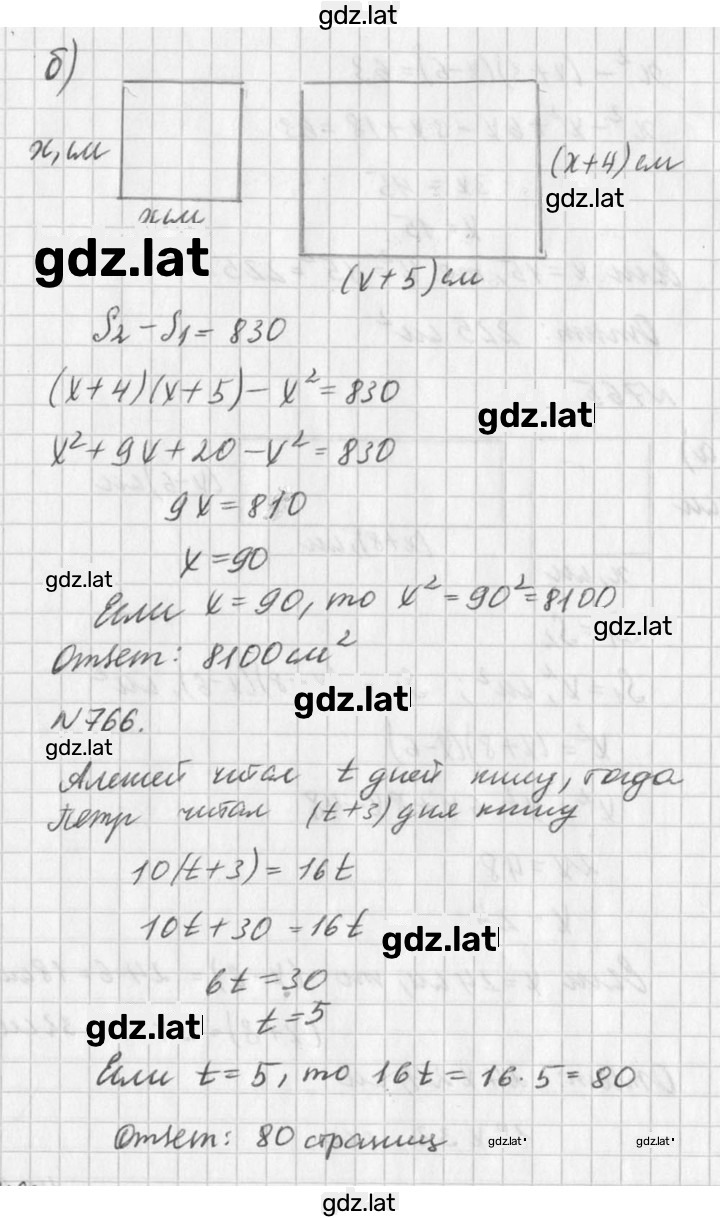 gdz.lat
б)
x, см
(x+4) см
gdz.lat
x см
gdz.lat
(x+5) см
S₂ - S₁ = 830
(x+4)(x+5) - x² = 830
gdz.lat
x² + 9x + 20 - x² = 830
9x = 810
x = 90
gdz.lat
Если x = 90, то x² = 90² = 8100
gdz.lat
Ответ: 8100 см²
gdz.lat
N 766.
gdz.lat
Алексей читал t дней книгу, тогда
Петр читал (t+3) дня книгу
10(t+3) = 16t
10t + 30 = 16t
gdz.lat
6t = 30
t = 5
gdz.lat
Если t = 5, то 16t = 16·5 = 80
Ответ: 80 страниц
gdz.lat
gdz.lat
gdz.lat